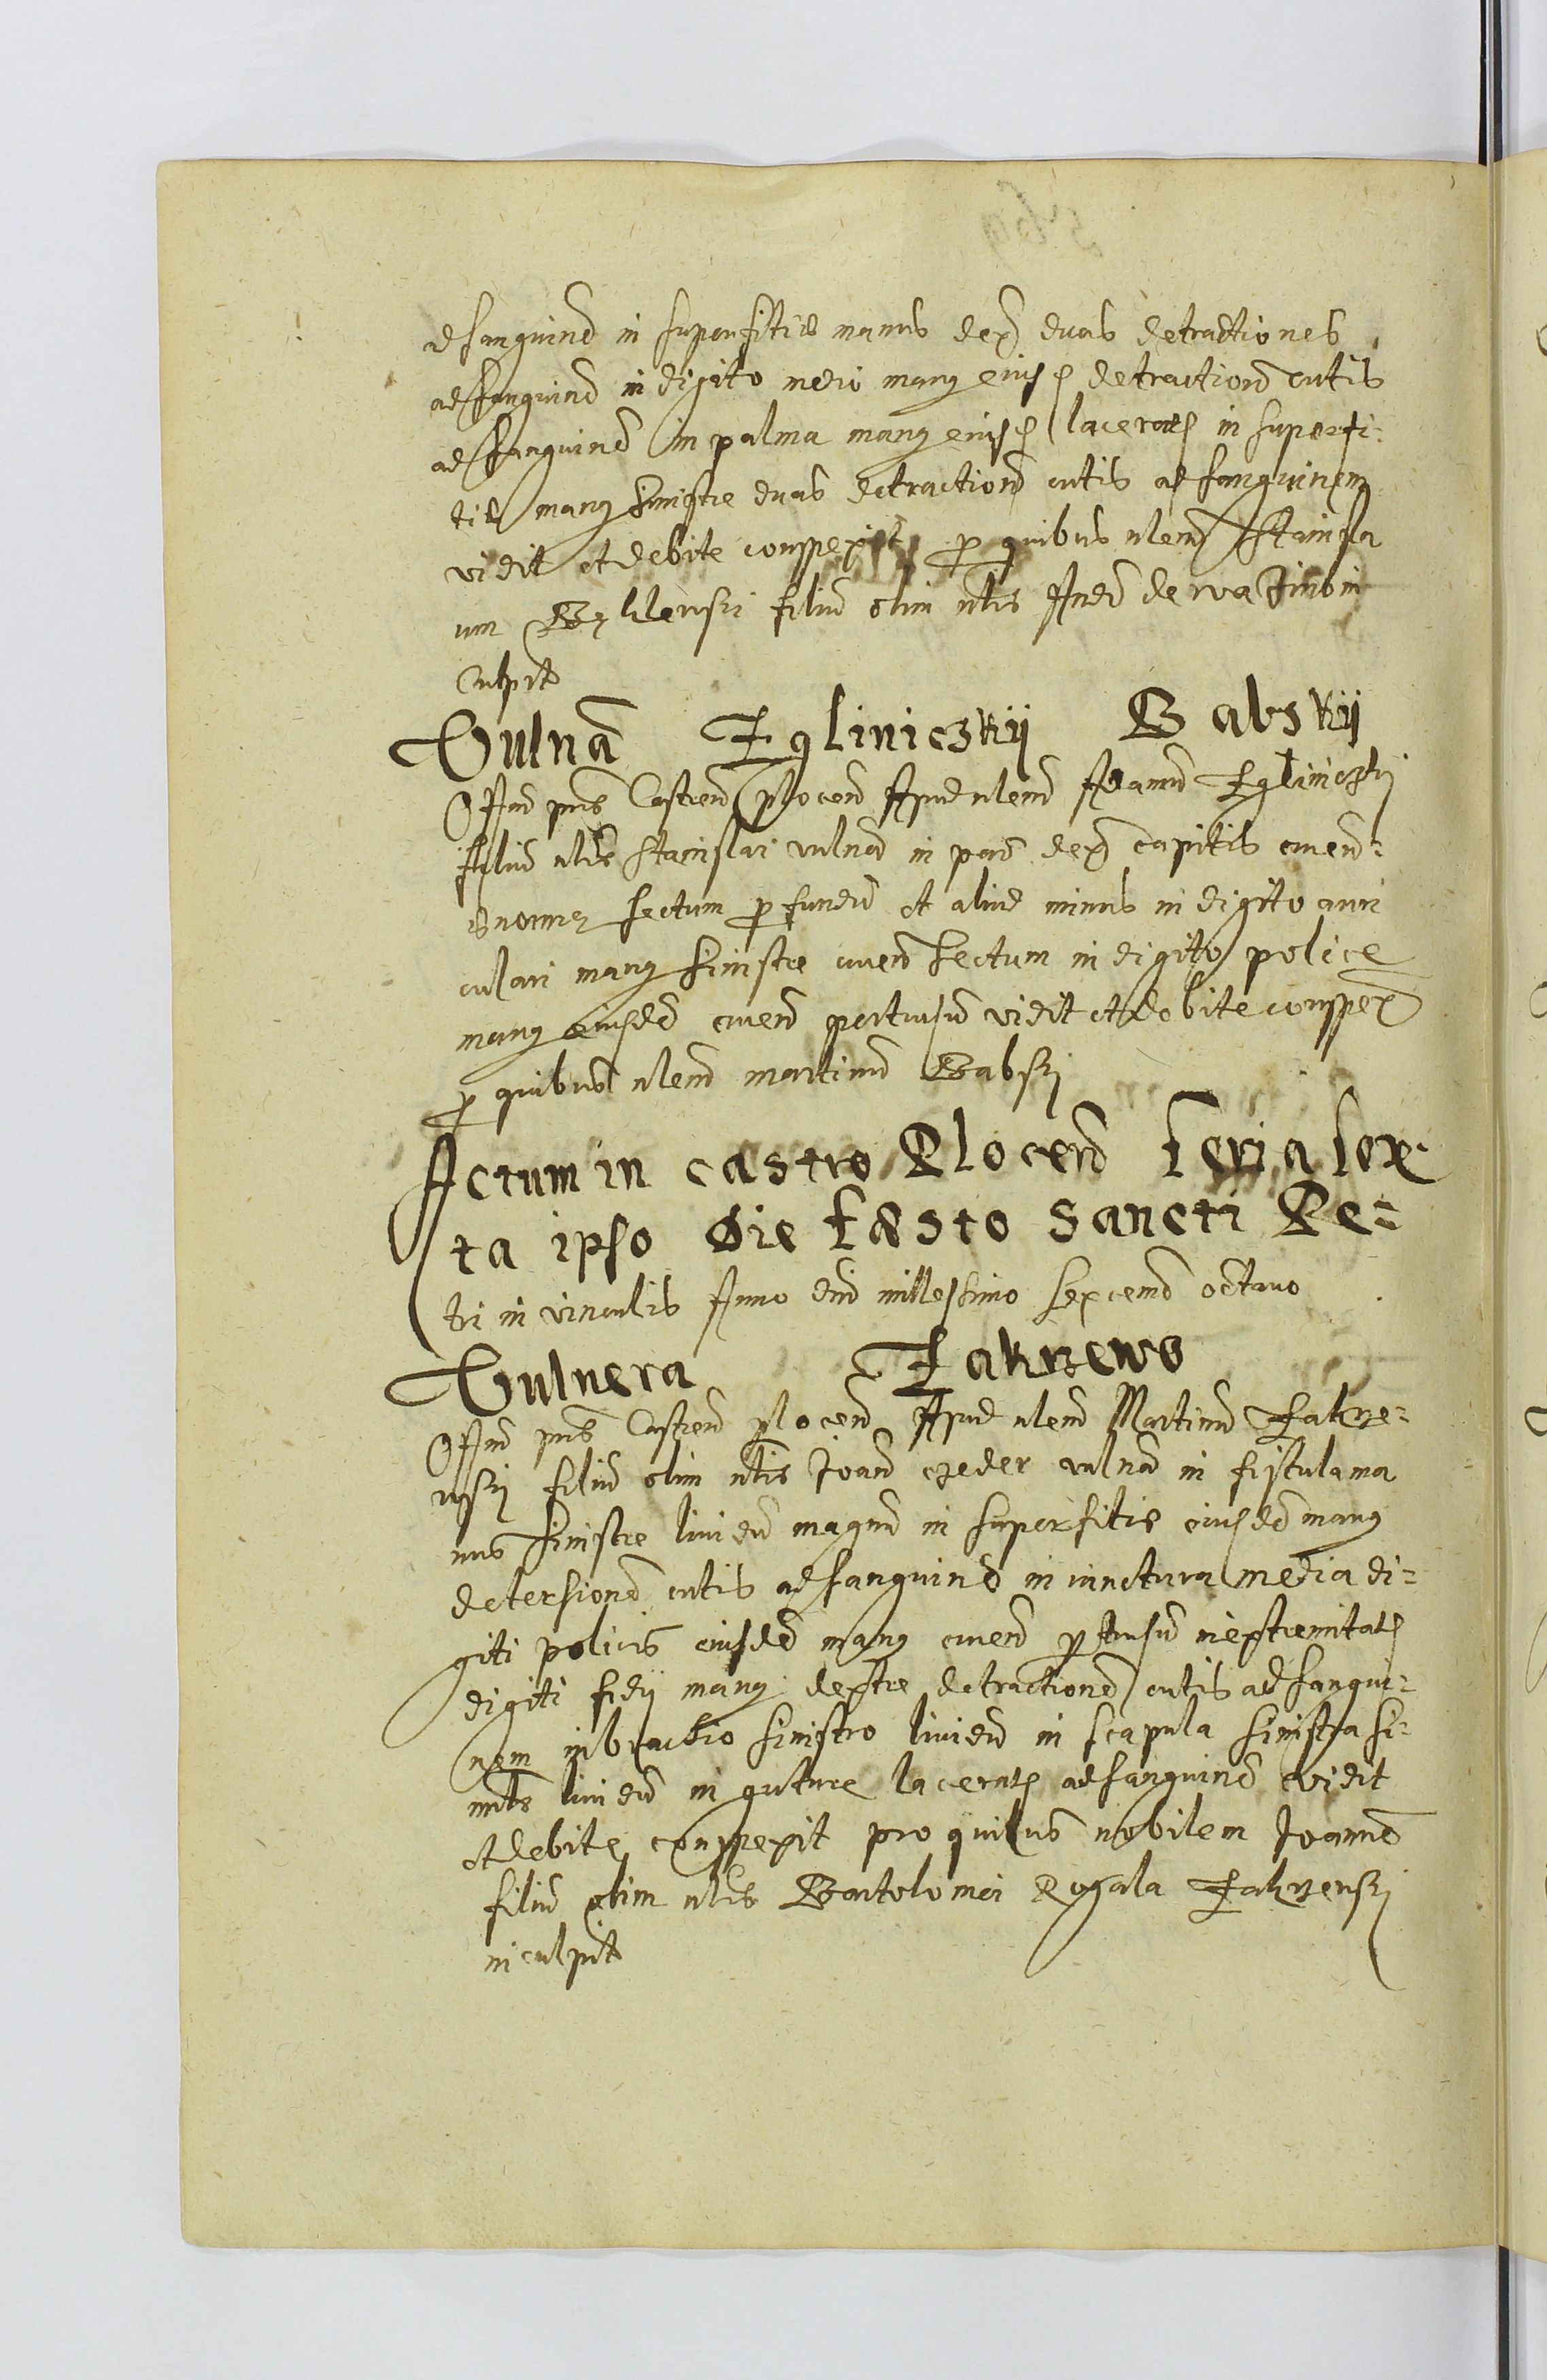 ad sanguine in superfitie manus dex duas detractiones
ad sanguine in digito medio manus eiusd detractione cutis
ad sanguine in palma manus eiusd lacerat in superfi-
tie manus sinistre duas detractione cutis ad sanguinem
vidit et debite conspexit pro quibus nlem Stanisla
um filiu olim nlis Andr de
Culpat
Vulnera Egliniczkij Babskij
Mind pns Castren plocen Apud nlem Adamu Egliniczki
filiu nlis Stanislai vulnera in parte dex capitis cruen-
sectum profundu et aliud minus in digito auri
culari manus sinistre cruen sectum in digito police
manus eiusde cruen pertusu vidit et debite conspex
pro quibus nlem martinu Babski
Actum in castro Plocen feria sex
ta ipso die festo Sancti Pe-
tri in vinculis Anno dni millesimo sexcente octavo
Vulnera Zakrzewo
pns Castren plocen Apud nlem Martinu Zakrze-
wski filiu olim nlis Joan vulnera in fistula ma
nus sinistre liuidu magnu in superfitie eiusde manus
detersione cutis ad sanguine in iunctura media di-
giti policis eiusde manus cruen pertusu in extremitate
digiti manus dextre detractione cutis ad sangui-
nem in brachio sinistro liuidu in scapula sinistra si-
mile liuidu in guture lacerat ad sanguine vidit
et debite conspexit pro quibus nobilem Joanne
filiu olim nlis Bartolomei Rogala Zakrzewski
inculpat